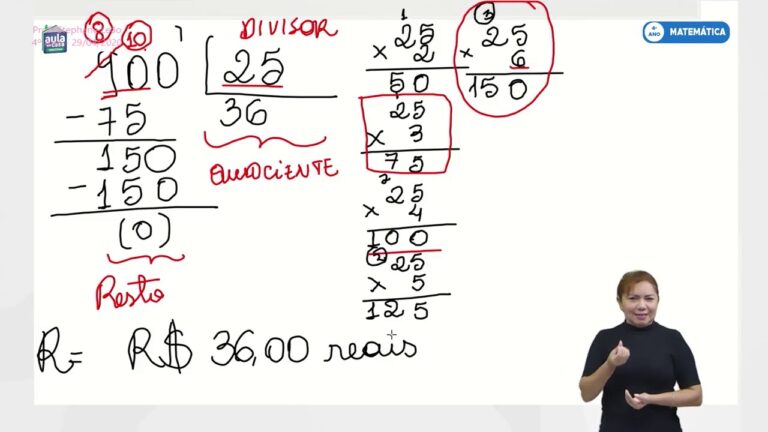 aula em casa
4º ANO MATEMÁTICA
DIVISOR
8 10
900 25
36
- 75
150
- 150
(0)
Resto
QUOCIENTE
1
25
× 2
50
25
× 3
75
2
25
× 4
100
2
25
× 5
125
3
25
× 6
150
R= R$ 36,00 reais